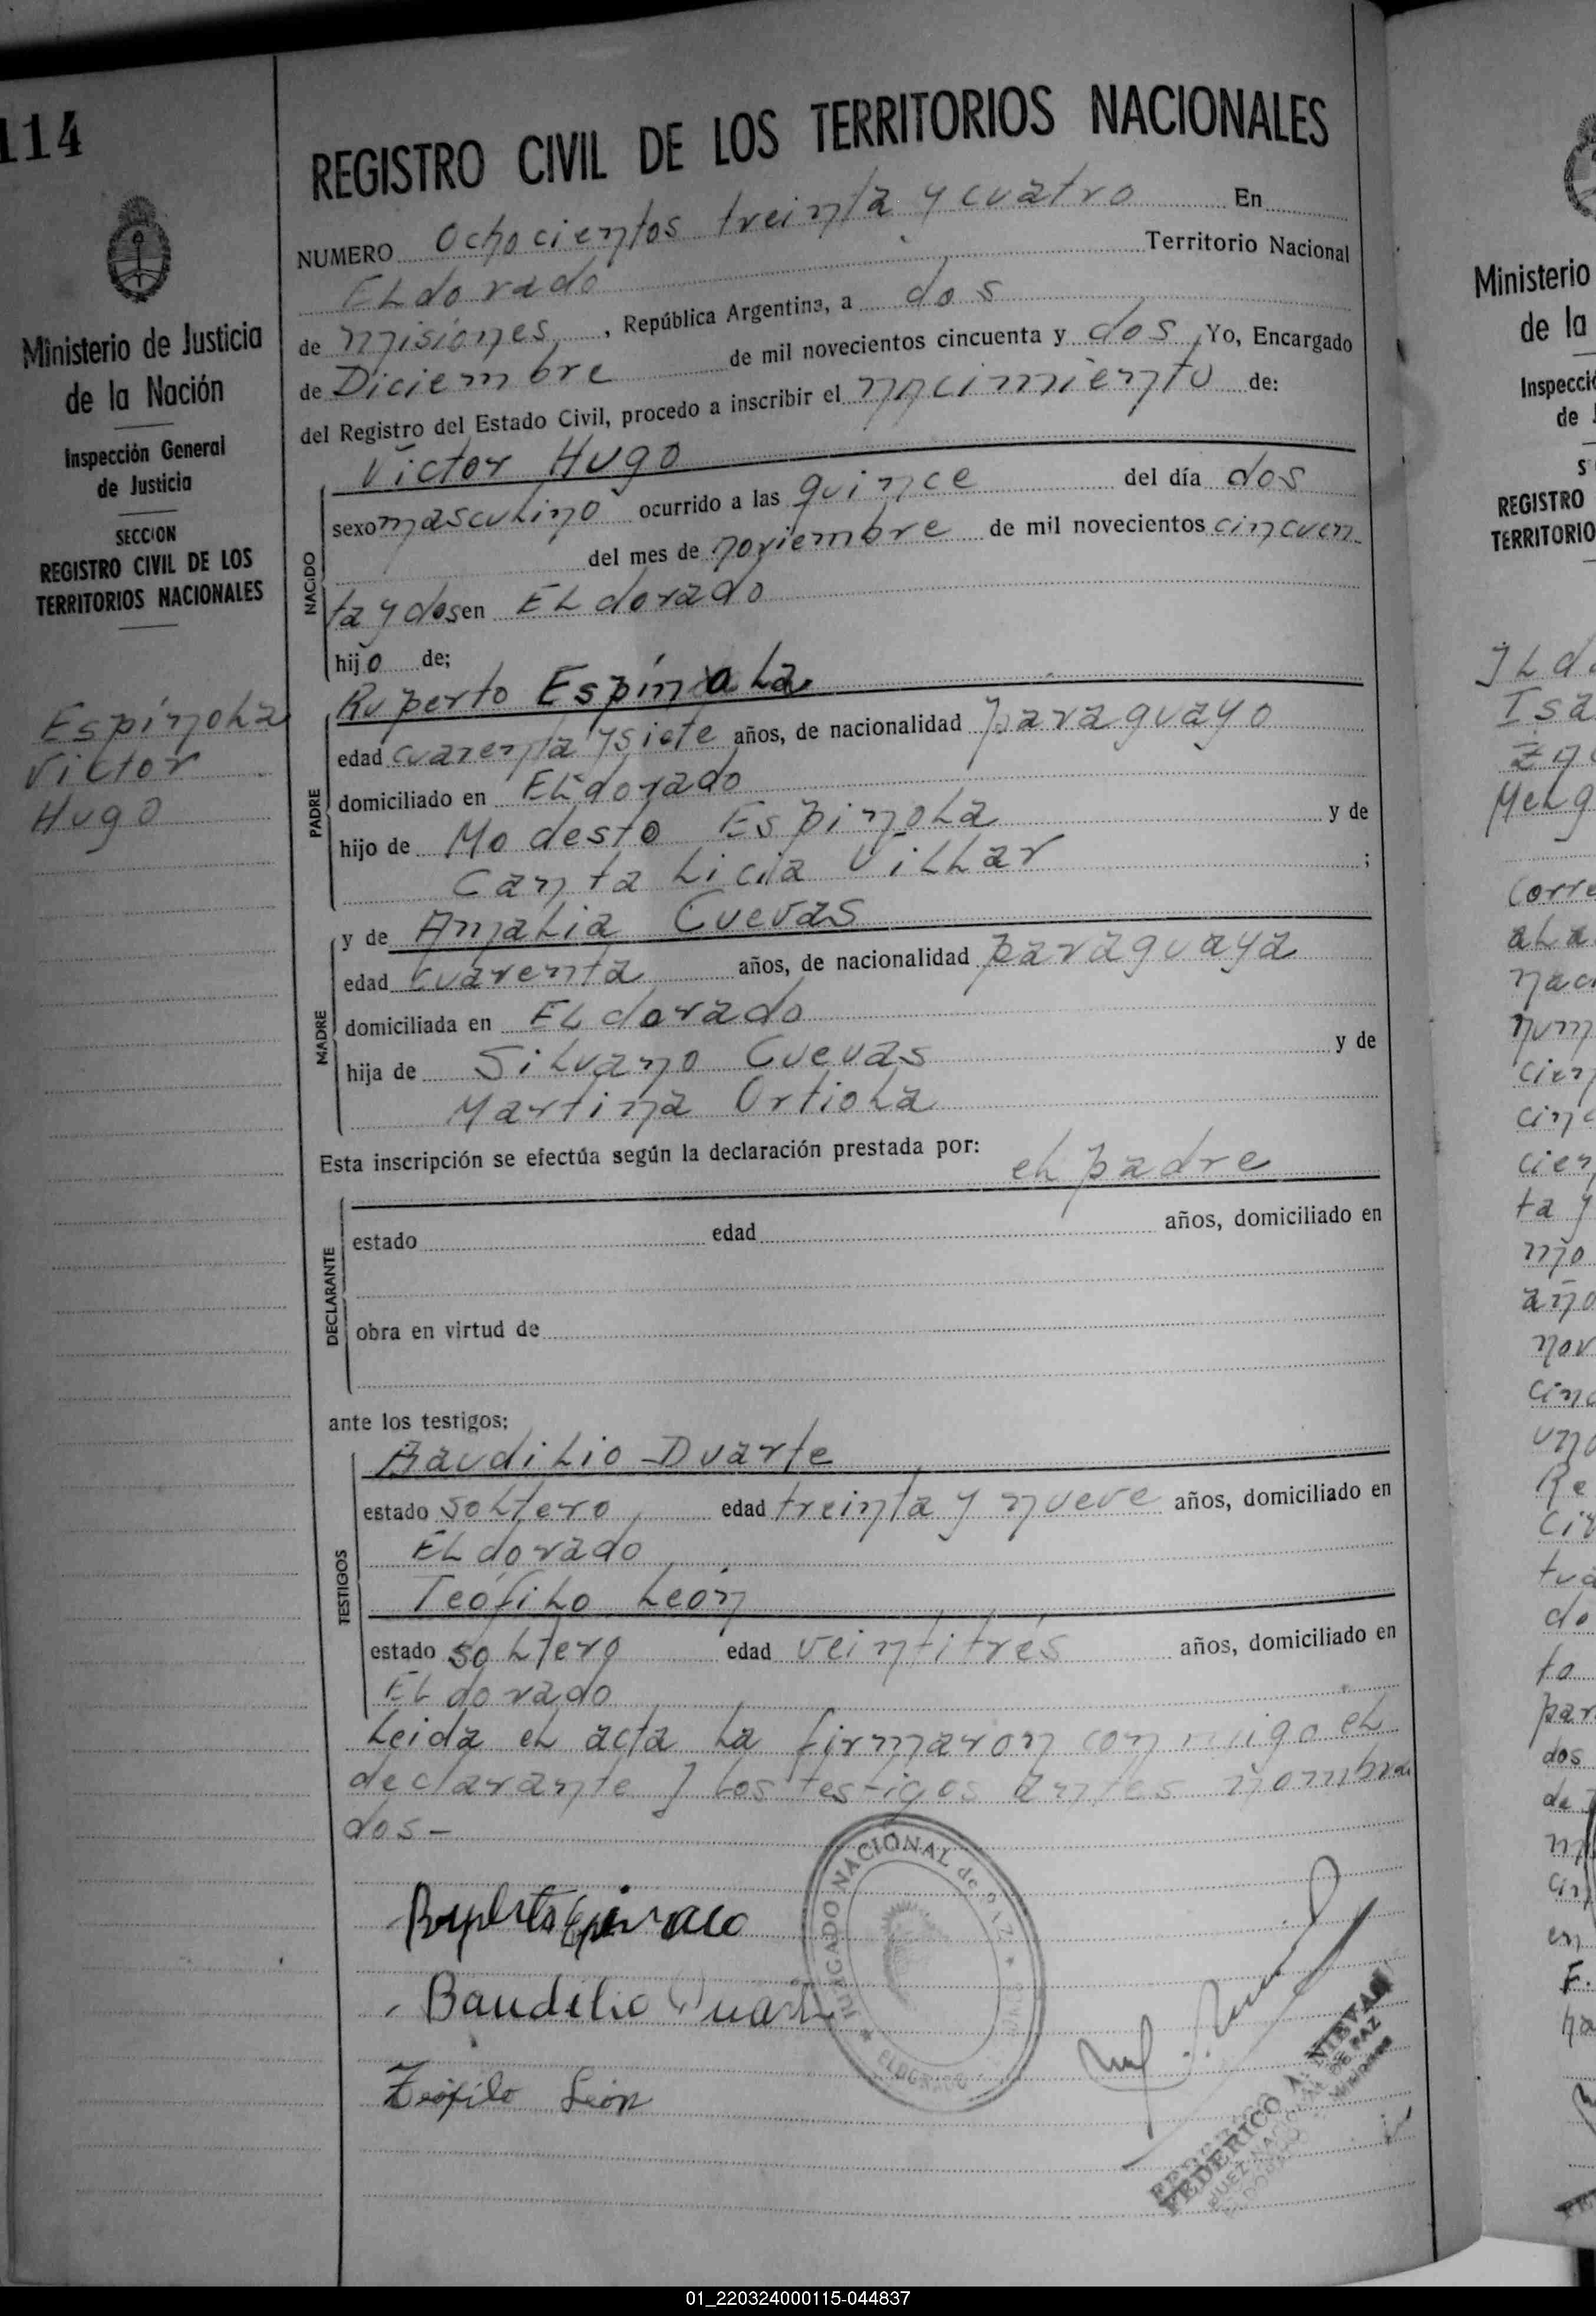 114
Ministerio de Justicia
de la Nación
Inspección General
de Justicia
SECCION
REGISTRO CIVIL DE LOS
TERRITORIOS NACIONALES
Espínola
Victor
Hugo
REGISTRO CIVIL DE LOS TERRITORIOS NACIONALES
NUMERO Ochocientos treinta y cuatro En
ELdorado Territorio Nacional
de misiones, República Argentina, a dos
de Diciembre de mil novecientos cincuenta y dos, Yo, Encargado
del Registro del Estado Civil, procedo a inscribir el nacimiento de:
Victor Hugo
NACIDO
sexo masculino ocurrido a las quince del día dos
del mes de noviembre de mil novecientos cincuen
ta y dos en ELdorado
hijo de;
PADRE
Ruperto Espínola
edad cuarenta y siete años, de nacionalidad paraguayo
domiciliado en ELdorado
hijo de Modesto Espinola y de
Canta Licia Villar ;
MADRE
y de Amalia Cuevas
edad cuarenta años, de nacionalidad paraguaya
domiciliada en ELdorado
hija de Silvano Cuevas y de
Martina Ortiola
Esta inscripción se efectúa según la declaración prestada por: el padre
DECLARANTE
estado edad años, domiciliado en
obra en virtud de
ante los testigos:
TESTIGOS
Baudilio Duarte
estado soltero edad treinta y nueve años, domiciliado en
ELdorado
Teófilo León
estado soltero edad veintitrés años, domiciliado en
ELdorado
Leida el acta la firmaron conmigo el
declarante y los testigos antes nombra
dos-
Baudilio Duarte
Teófilo León
JUZGADO NACIONAL de PAZ
ELDORADO
FEDERICO A. NIEVAS
JUEZ NACIONAL DE PAZ
ELDORADO - Misiones
Ministerio
de la
Inspecci
de J
S
REGISTRO
TERRITORIO
01_220324000115-044837